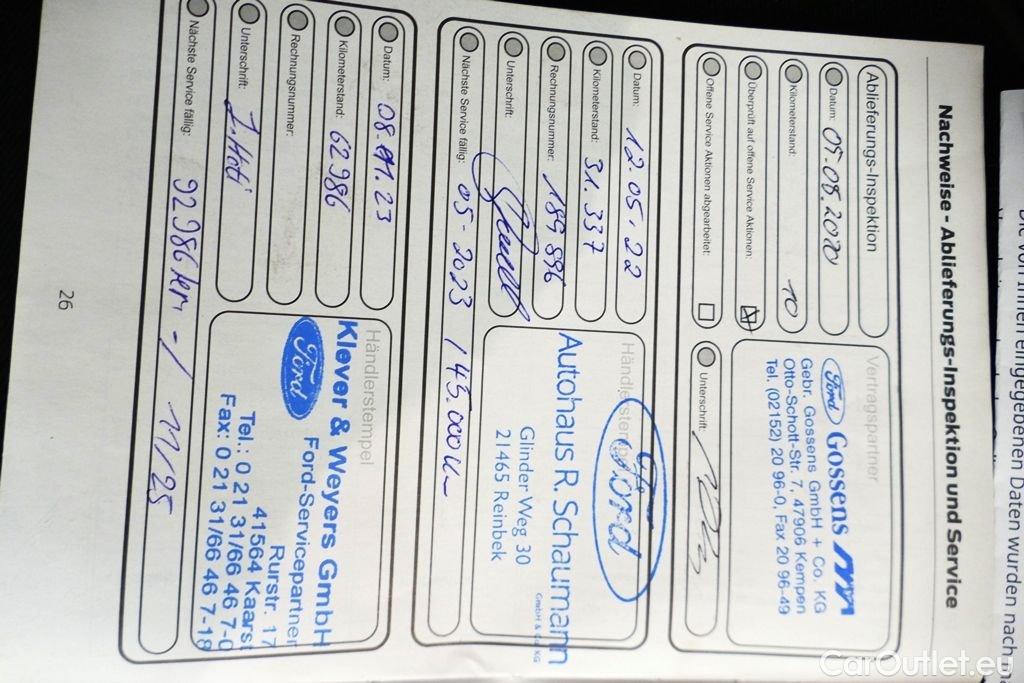 Nachweise - Ablieferungs-Inspektion und Service
Ablieferungs-Inspektion
Datum: 05.08.2020
Kilometerstand: 10
Überprüft auf offene Service Aktionen:
Offene Service Aktionen abgearbeitet:
Vertragspartner
Ford Gossens
Gebr. Gossens GmbH + Co. KG
Otto-Schott-Str. 7, 47906 Kempen
Tel. (02152) 20 96-0, Fax 20 96-49
Unterschrift:
Datum: 12.05.22
Kilometerstand: 31.337
Rechnungsnummer: 189896
Unterschrift:
Händlerstempel
Ford
Autohaus R. Schaumann
GmbH & Co. KG
Glinder Weg 30
21465 Reinbek
Nächste Service fällig: 05-2023 / 45.000
Datum: 08.11.23
Kilometerstand: 62986
Rechnungsnummer:
Unterschrift:
Händlerstempel
Klever & Weyers GmbH
Ford Ford-Servicepartner
Rurstr. 17
41564 Kaarst
Tel.: 0 21 31/66 46 7-0
Fax: 0 21 31/66 46 7-18
Nächste Service fällig: 92986 km - / 11/25
26
Die von Ihnen eingegebenen Daten wurden nach
CarOutlet.eu